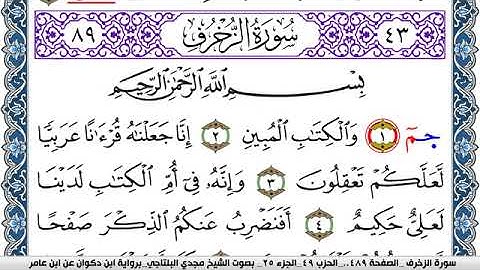 ٨٩ سُورَةُ الزُّخْرُفِ ٤٣
بِسْمِ اللَّهِ الرَّحْمَٰنِ الرَّحِيمِ
حمٓ ١ وَالْكِتَابِ الْمُبِينِ ٢ إِنَّا جَعَلْنَاهُ قُرْءَانًا عَرَبِيًّا
لَعَلَّكُمْ تَعْقِلُونَ ٣ وَإِنَّهُ فِي أُمِّ الْكِتَابِ لَدَيْنَا
لَعَلِيٌّ حَكِيمٌ ٤ أَفَنَضْرِبُ عَنكُمُ الذِّكْرَ صَفْحًا
سورة الزخرف _الصفحة ٤٨٩.._الحزب ٤٩_الجزء ٢٥_ بصوت الشيخ مجدي البلتاجي_برواية ابن ذكوان عن ابن عامر